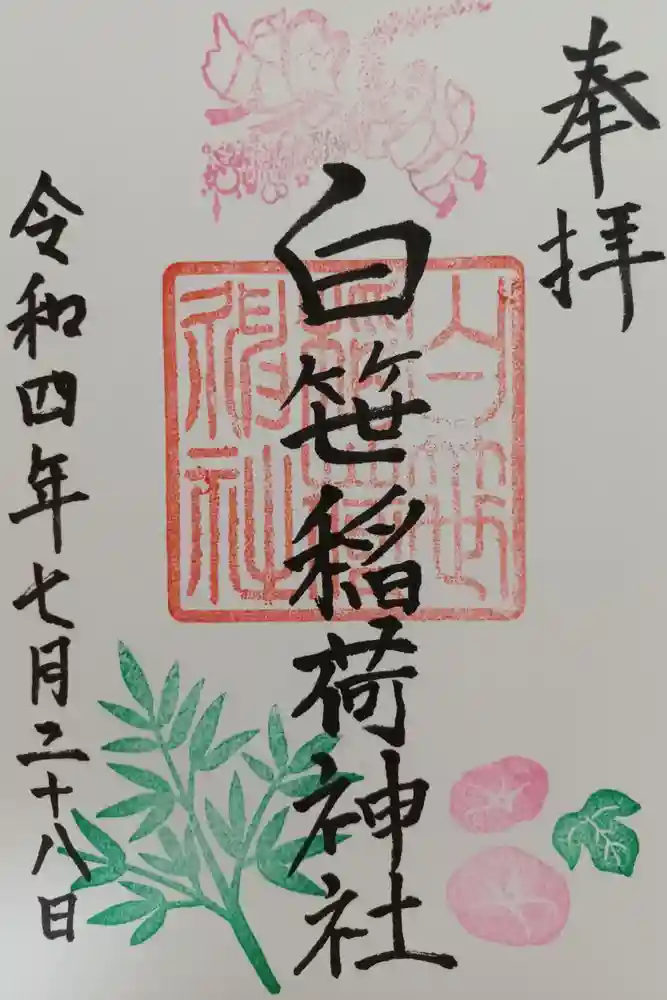 奉拝
白笹稲荷神社
白笹
稲荷
神社
令和四年七月二十八日